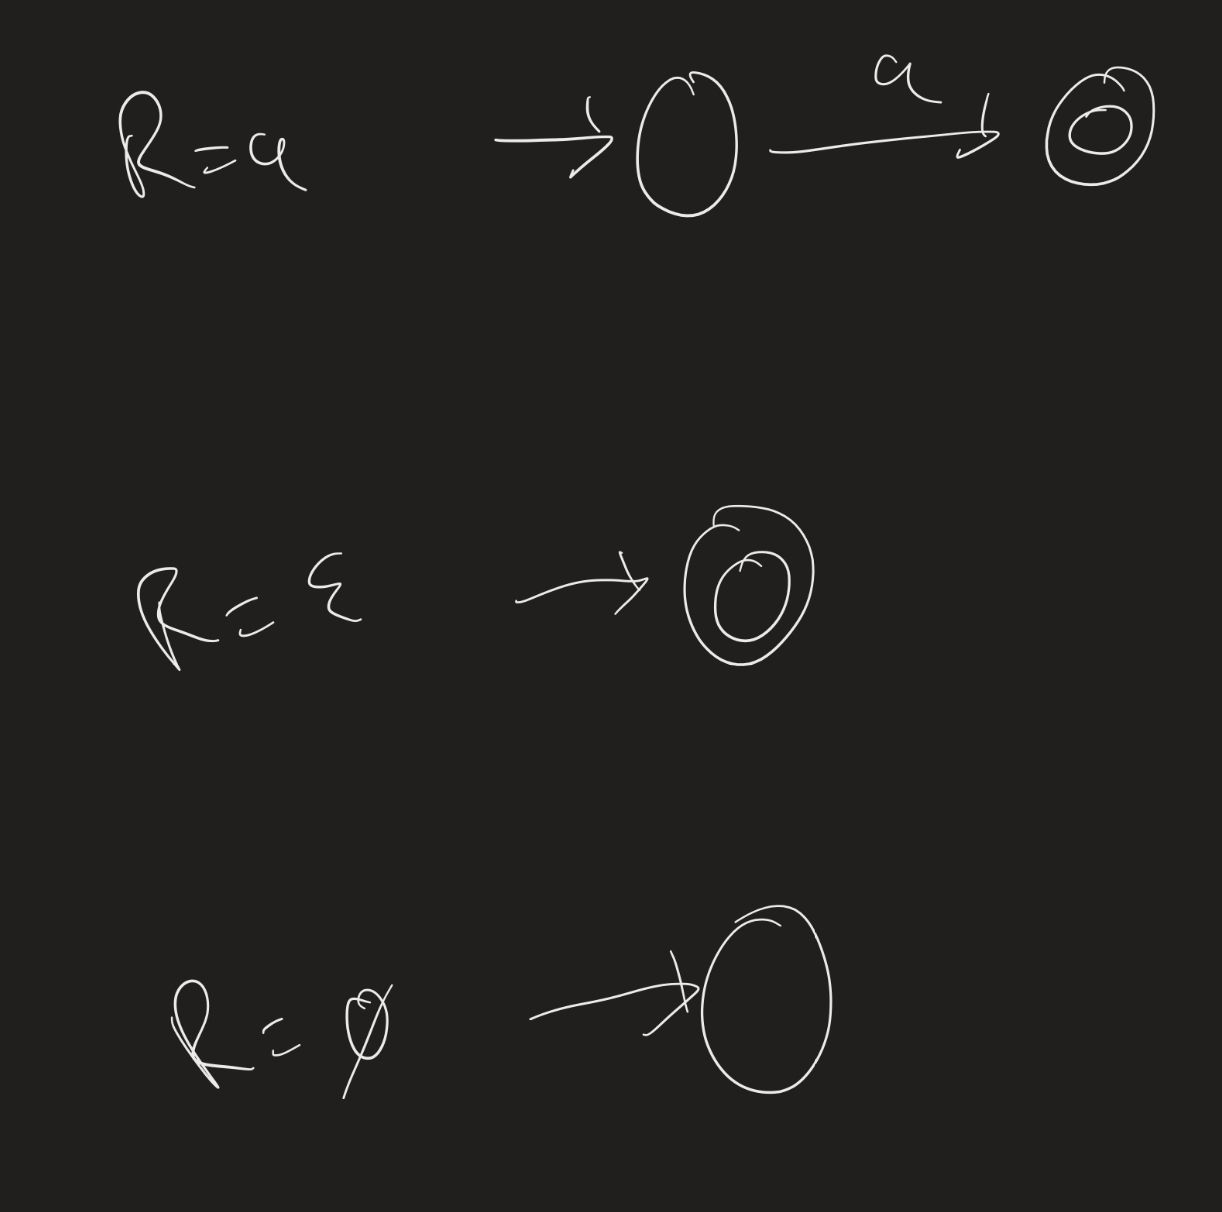 R = a a
R = ε
R = ∅